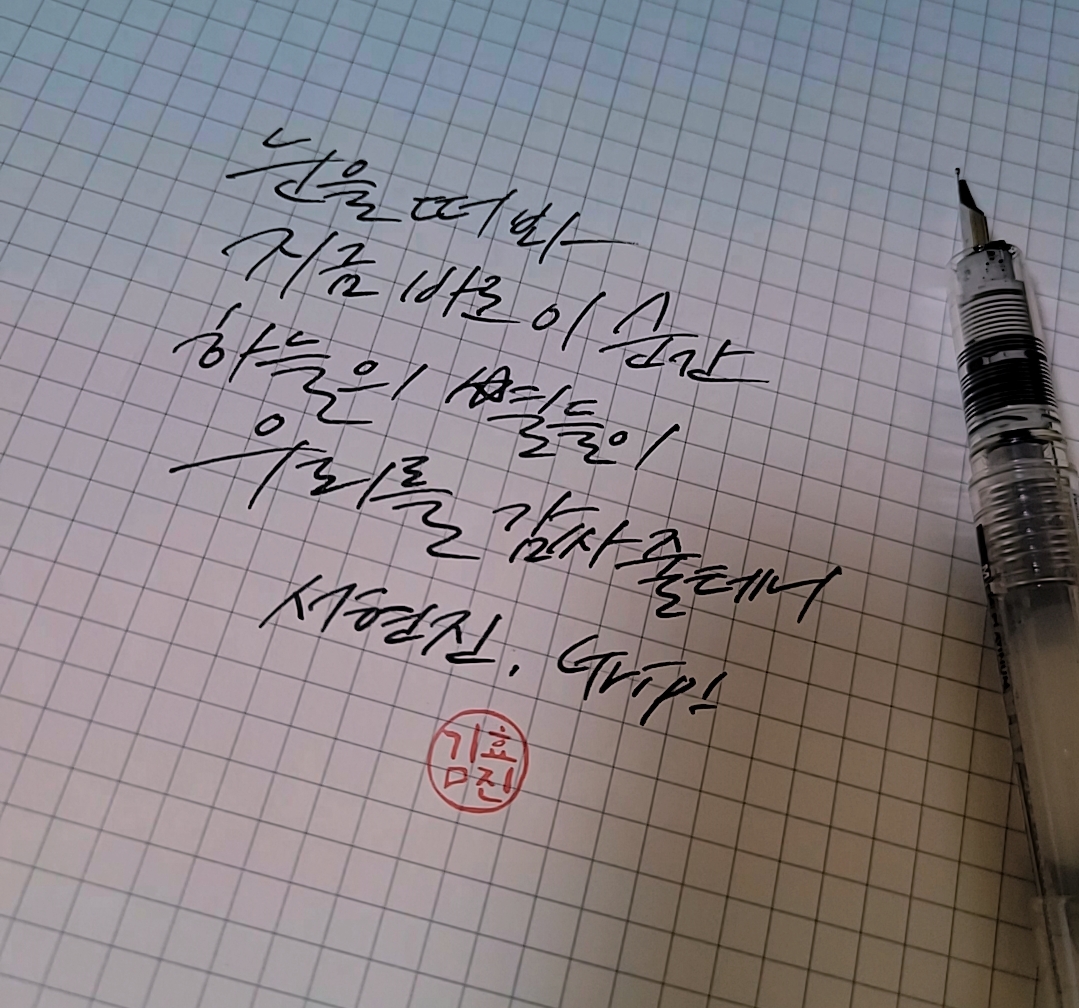 눈을 떠봐
지금 바로 이 순간
하늘의 별들이
우리를 감싸 줄테니
서현진, Grip!
김효진